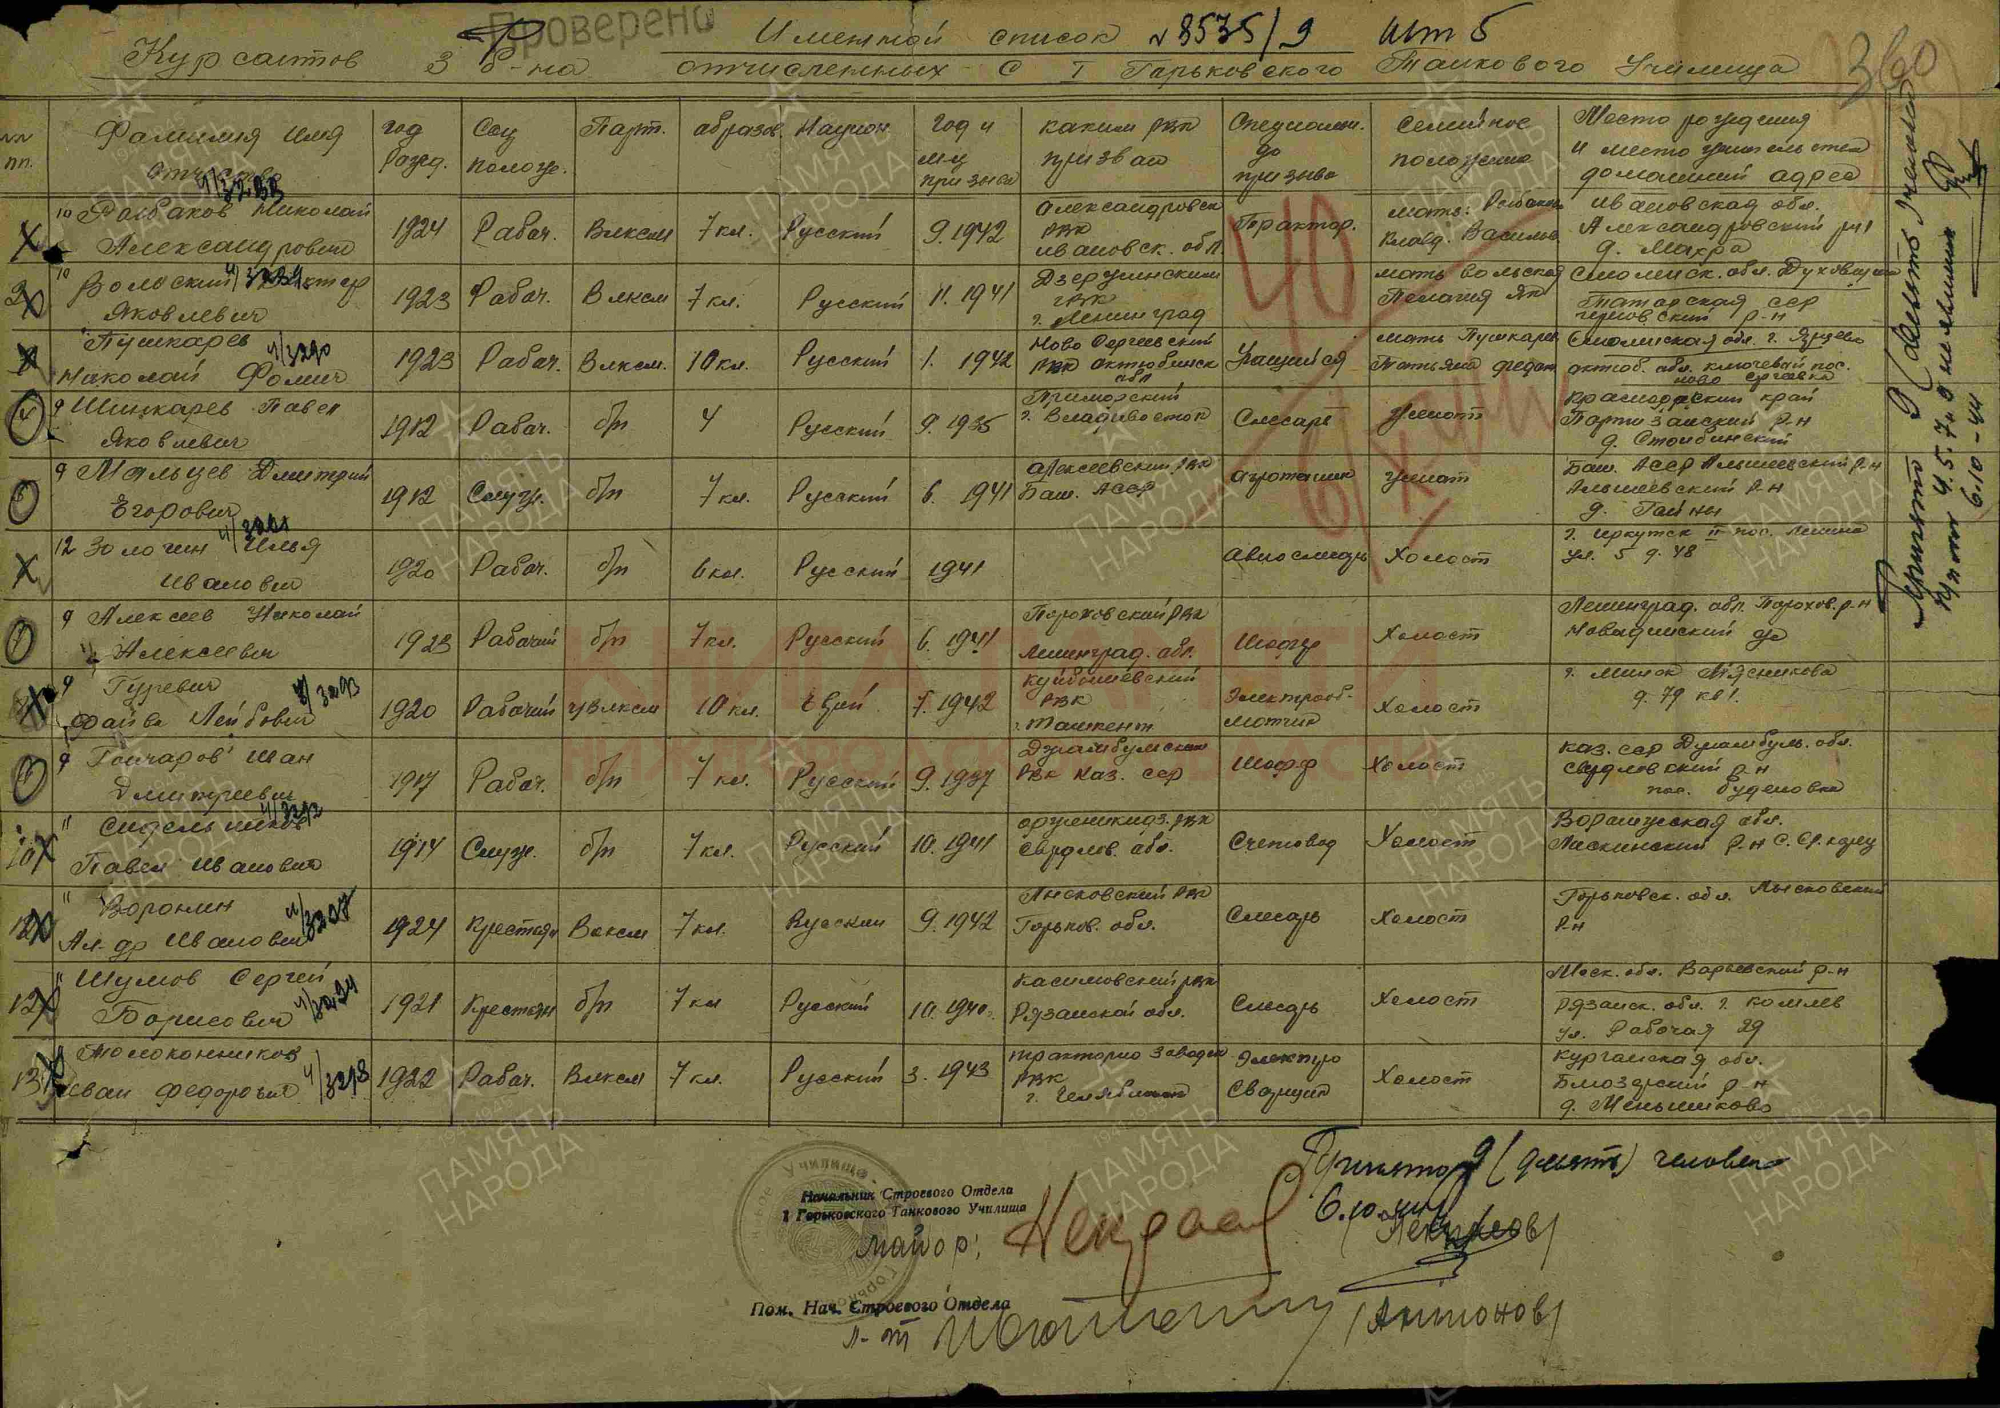 Проверено
Именной список № 8535/9 шт 5
Курсантов 3 б-на отчисленных с I Горьковского Танкового Училища
360
NN пп. Фамилия имя отчество год рожд. Соц полож. Парт. образов. Национ. Год и м-ц призыва каким РВК призван Специальн. до призыва Семейное положение Место рождения и место жительства домашний адрес
Рыбаков Николай Александрович ч/3288 1924 Рабоч. Влксм 7 кл. Русский 9. 1942 Александровск РВК Ивановск. обл. Трактор. мать: Рыбакова Клавд. Василь. Ивановская обл. Александровский р-н д. Махра
2 Вольский Яковлевич 1923 Рабоч. Влксм 7 кл. Русский 11. 1941 Дзержинским РВК г. Ленинград мать Вольская Пелагия Як Смоленск. обл. Татарская сср р-н
Пушкарев Николай Фомич ч/3290 1923 Рабоч. Влксм. 10 кл. Русский 1. 1942 Ново Сергеевский РВК Актюбинск обл Учащийся мать Пушкарев Татьяна Федот Смоленская обл. г. Ярцево актюб. обл. ключевой пос. ново Сергеевка
4 9 Шинкарев Павел Яковлевич 1912 Рабоч. б/п 4 Русский 9. 1935 Приморский г. Владивосток Слесарь женат край Партизанский р-н д.
5 9 Мальцев Дмитрий Егорович 1912 Служ. б/п 7 кл. Русский 6. 1941 РВК Баш. АССР женат Баш. АССР Альшеевский р-н Альшеевский р-н д. Гайны
12 Зологин Илья Иванович 1920 Рабоч. б/п 6 кл. Русский 1941 Авиослесарь Холост г. Иркутск II пос. Ленина ул. 5 д. 48
7 9 Алексеев Николай Алексеевич 1923 Рабочий б/п 7 кл. Русский 6. 1941 Порховский РВК Ленинград. обл. Шофер Холост Ленинград. обл. Порхов. р-н
9 Гуревич Файва Лейбович ч/3293 1920 Рабочий чВлксм 10 кл. Еврей 7. 1942 Куйбышевский РВК г. Ташкент Электрооб-мотчик Холост г. Минск Мясникова д. 79 кв 1.
9 9 Гончаров Иван Дмитриевич 1917 Рабоч. б/п 7 кл. Русский 9. 1937 Джамбульским РВК Каз. сср Шофер Холост Каз. сср Джамбуль. обл. Свердловский р-н пос. Буденовка
10 Сидельников Павел Иванович ч/3212 1914 Служ. б/п 7 кл. Русский 10. 1941 орджоникидз. РВК Свердлов. обл. Счетовод Холост Воронежская обл. Лискинский р-н
Воронин Ал-др Иванович ч/3207 1924 Крестьян Влксм 7 кл. Русский 9. 1942 Лысковский РВК Горьков. обл. Слесарь Холост Горьковск. обл. Лысковский р-н
12 Шумов Сергей Борисович 1921 Крестьян б/п 7 кл Русский 10. 1940 Касимовский РВК Рязанской обл. Слесарь Холост Моск. обл. р-н Рязанск. обл. г. ул. Рабочая 29
13 Толоконников Иван Федорович ч/3213 1922 Рабоч. Влксм 7 кл. Русский 3. 1943 тракторно заводск РВК г. Челябинск Электро Сварщик Холост Курганская обл. р-н д. Меньшиково
40
6/X 44
Принято 9 (девять) человек
пункт 4.5.7 и 9 не явились
6.10-44
Принято 9 (девять) человек
6.10.44
Начальник Строевого Отдела
1 Горьковского Танкового Училища
майор:
Пом. Нач. Строевого Отдела
л-т
/Антонов/
КНИГА ПАМЯТИ
НИЖЕГОРОДСКОЙ ОБЛАСТИ
ПАМЯТЬ НАРОДА
1941-1945